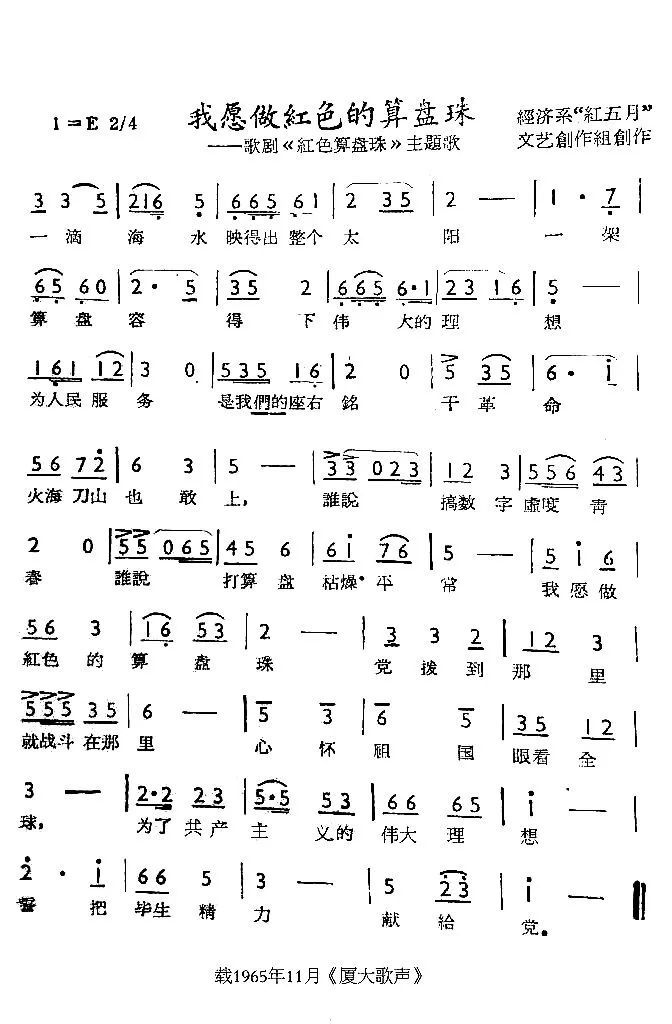 我愿做紅色的算盘珠
1=E 2/4
——歌剧《紅色算盘珠》主題歌
經济系“紅五月”
文艺創作組創作
3 3 5 | 216 5 | 665 61 | 2 35 | 2 — | 1 · 7 |
一滴 海 水 映得出 整个 太 阳 一 架
65 60 | 2 · 5 | 35 2 | 665 6·1 | 23 16 | 5 — |
算 盘 容 得 下 伟 大的 理 想
161 12 | 3 0 | 535 16 | 2 0 | 5 35 | 6 · i |
为人民 服 务 是我們的座右 銘 干 革 命
56 72 | 6 3 | 5 — | 33 023 | 12 3 | 556 43 |
火海 刀山 也 敢 上, 誰說 搞数 字 虛度 青
2 0 | 55 065 | 45 6 | 6i 76 | 5 — | 5 i 6 |
春 誰說 打算 盘 枯燥 平 常 我 愿 做
56 3 | 16 53 | 2 — | 3 3 2 | 12 3 |
紅色 的 算 盘 珠 党 拨 到 那 里
555 35 | 6 — | 5 3 | 6 5 | 35 12 |
就战斗 在那 里 心 怀 祖 国 眼看 全
3 — | 2·2 23 | 5·5 53 | 66 65 | i — |
球, 为了 共产 主 义的 伟大 理 想
2 · i | 66 5 | 3 — | 5 23 | i — ‖
誓 把 毕生 精 力 献 給 党。
载1965年11月《厦大歌声》